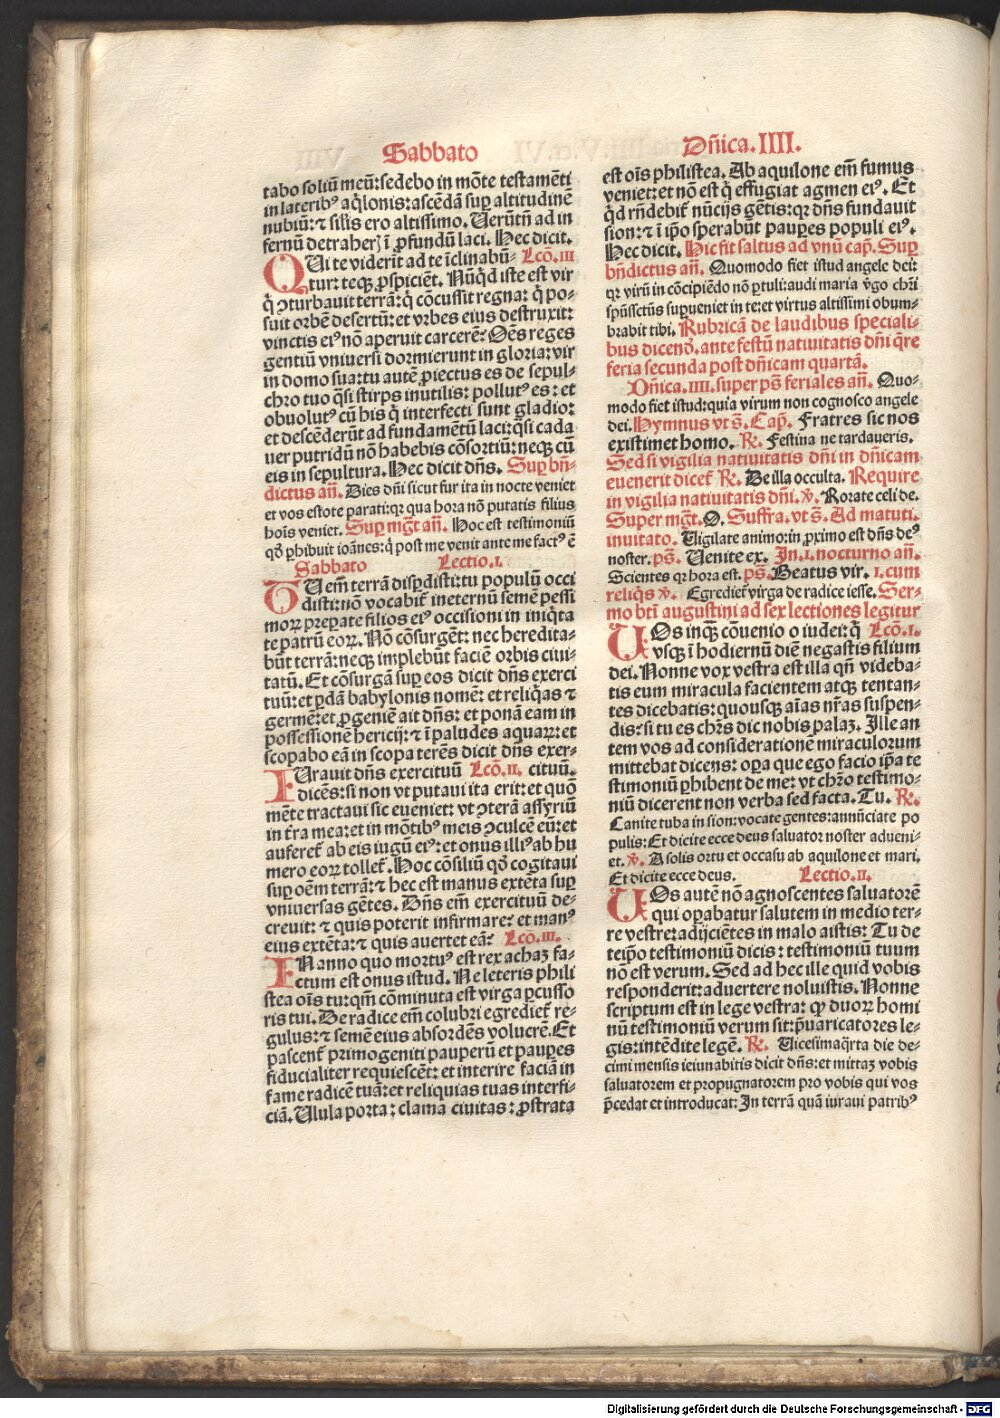 Sabbato
tabo soliũ meũ: sedebo in mõte testamẽti
in lateribꝰ aq̇lonis: ascẽdã suꝑ altitudinẽ
nubiũ: ⁊ sil̃is ero altissimo. Uerũtñ ad in
fernũ detraherꝭ ĩ ꝓfundũ laci. Hec dicit.
QUi te viderĩt ad te ĩclinabũ- Lcõ. III
tur: teqꝫ ꝓspiciẽt. Nũqͥd iste est vir
q̇ ↄturbauit terrã: q̇ cõcussit regna: q̇ po-
suit orbẽ desertũ: et vrbes eius destruxit:
vinctis eiꝰ nõ aperuit carcerẽ? Oẽs reges
gentiũ vniuersi dormierunt in gloria: vir
in domo sua: tu autẽ ꝓiectus es de sepul-
chro tuo q̃si stirps inutilis: pollutꝰ es: et
obuolutꝰ cũ his q̇ interfecti sunt gladio:
et descẽderũt ad fundamẽtũ laci: q̃si cada
uer putridũ nõ habebis cõsortiũ: neqꝫ cũ
eis in sepultura. Hec dicit dñs. Suꝑ bñ-
dictus añ. Dies dñi sicut fur ita in nocte veniet
et vos estote parati: qꝛ qua hora nõ putatis filius
hoĩs veniet. Suꝑ mgt̃ añ. Hoc est testimoniũ
qõ ꝑhibuit ioãnes: q̇ post me venit ante me factꝰ ẽ
Sabbato Lectio. I.
TUem̃ terrã disꝑdisti: tu populũ occi
disti: nõ vocabit̃ ineternũ semẽ pessi
moꝝ preparate filios eiꝰ occisioni in iniq̇ta
te patrũ eoꝝ. Nõ cõsurgẽt: nec heredita-
bũt terrã: neqꝫ implebũt faciẽ orbis ciui-
tatũ. Et cõsurgã suꝑ eos dicit dñs exerci
tuũ: et ꝑdã babylonis nomẽ: et reliq̇as ⁊
germẽ: et ꝓgeniẽ ait dñs: et ponã eam in
possessionẽ hericij: ⁊ ĩ paludes aquaꝝ: et
scopabo eã in scopa terẽs dicit dñs exer-
IUrauit dñs exercituũ Lcõ. II. cituũ.
dicẽs: si non vt putaui ita erit: et quõ
mẽte tractaui sic eueniet: vt ↄterã assyriũ
in tr̃a mea: et in mõtibꝰ meis ↄculcẽ eũ: et
auferet̃ ab eis iugũ eiꝰ: et onus illiꝰ ab hu
mero eoꝝ tollet̃. Hoc cõsiliũ qõ cogitaui
suꝑ oẽm terrã: ⁊ hec est manus extẽta suꝑ
vniuersas gẽtes. Dñs em̃ exercituũ de-
creuit: ⁊ quis poterit infirmare? et manꝰ
eius extẽta: ⁊ quis auertet eã? Lcõ. III.
IN anno quo mortuꝰ est rex achaꝫ fa-
ctum est onus istud. Ne leteris phili
stea oĩs tu: qm̃ cõminuta est virga ꝑcusso
ris tui. De radice em̃ colubri egrediet̃ re-
gulus: ⁊ semẽ eius absordẽs volucrẽ. Et
pascent̃ primogeniti pauperũ et pauꝑes
fiducialiter requiescẽt: et interire faciã in
fame radicẽ tuã: et reliquias tuas interfi-
ciã. Ulula porta: clama ciuitas: ꝓstrata
Dñica. IIII.
est oĩs philistea. Ab aquilone em̃ fumus
veniet: et nõ est q̇ effugiat agmen eiꝰ. Et
qͥd rñdebit̃ nũcijs gẽtis: qꝛ dñs fundauit
sion: ⁊ ĩ ip̃o sperabũt pauꝑes populi eiꝰ.
Hec dicit. Hic fit saltus ad vnũ cap̃. Suꝑ
bñdictus añ. Quomodo fiet istud angele dei:
qꝛ virũ in cõcipiẽdo nõ ꝑtuli: audi maria ṽgo chr̃i
spũssctũs suꝑueniet in te: et virtus altissimi obum-
brabit tibi. Rubricã de laudibus speciali-
bus dicend̃. ante festũ natiuitatis dñi q̃re
feria secunda post dñicam quartã.
Dñica. IIII. super p̃s feriales añ. Quo-
modo fiet istud: quia virum non cognosco angele
dei. Hymnus vt s̃. Cap̃. Fratres sic nos
existimet homo. ℟. Festina ne tardaueris.
Sed si vigilia natiuitatis dñi in dñicam
euenerit dicet̃ ℟. De illa occulta. Require
in vigilia natiuitatis dñi. ℣. Rorate celi de.
Super mgt̃. O. Suffra. vt s̃. Ad matuti.
inuitato. Uigilate animo: in ꝓximo est dñs deꝰ
noster. p̃s. Uenite ex. In. I. nocturno añ.
Scientes qꝛ hora est. p̃s. Beatus vir. I. cum
reliq̇s ℣. Egrediet̃ virga de radice iesse. Ser-
mo bt̃i augustini ad sex lectiones legitur
UOs inqꝫ cõuenio o iudei: q̇ Lcõ. I.
vsqꝫ ĩ hodiernũ diẽ negastis filium
dei. Nonne vox vestra est illa qñ videba-
tis eum miracula facientem atqꝫ tentan-
tes dicebatis: quousqꝫ aĩas nr̃as suspen-
dis? si tu es chr̃s dic nobis palaꝫ. Ille an
tem vos ad considerationẽ miraculorum
mittebat dicens: oꝑa que ego facio ip̃a te
stimoniũ ꝑhibent de me: vt chr̃o testimo-
niũ dicerent non verba sed facta. Tu. ℟.
Canite tuba in sion: vocate gentes: annũciate po
pulis: Et dicite ecce deus saluator noster adueni-
et. ℣. A solis ortu et occasu ab aquilone et mari.
Et dicite ecce deus. Lectio. II.
UOs autẽ nõ agnoscentes saluatorẽ
qui oꝑabatur salutem in medio ter-
re vestre: adijciẽtes in malo aistis: Tu de
teip̃o testimoniũ dicis: testimoniũ tuum
nõ est verum. Sed ad hec ille quid vobis
responderit: aduertere noluistis. Nonne
scriptum est in lege vestra: ꝙ duoꝝ homi
nũ testimoniũ verum sit: p̃uaricatores le-
gis: intẽdite legẽ. ℟. Uicesimaq̃rta die de-
cimi mensis ieiunabitis dicit dñs: et mittaꝫ vobis
saluatorem et propugnatorem pro vobis qui vos
p̃cedat et introducat: In terrã quã iuraui patribꝰ
Digitalisierung gefördert durch die Deutsche Forschungsgemeinschaft - DFG